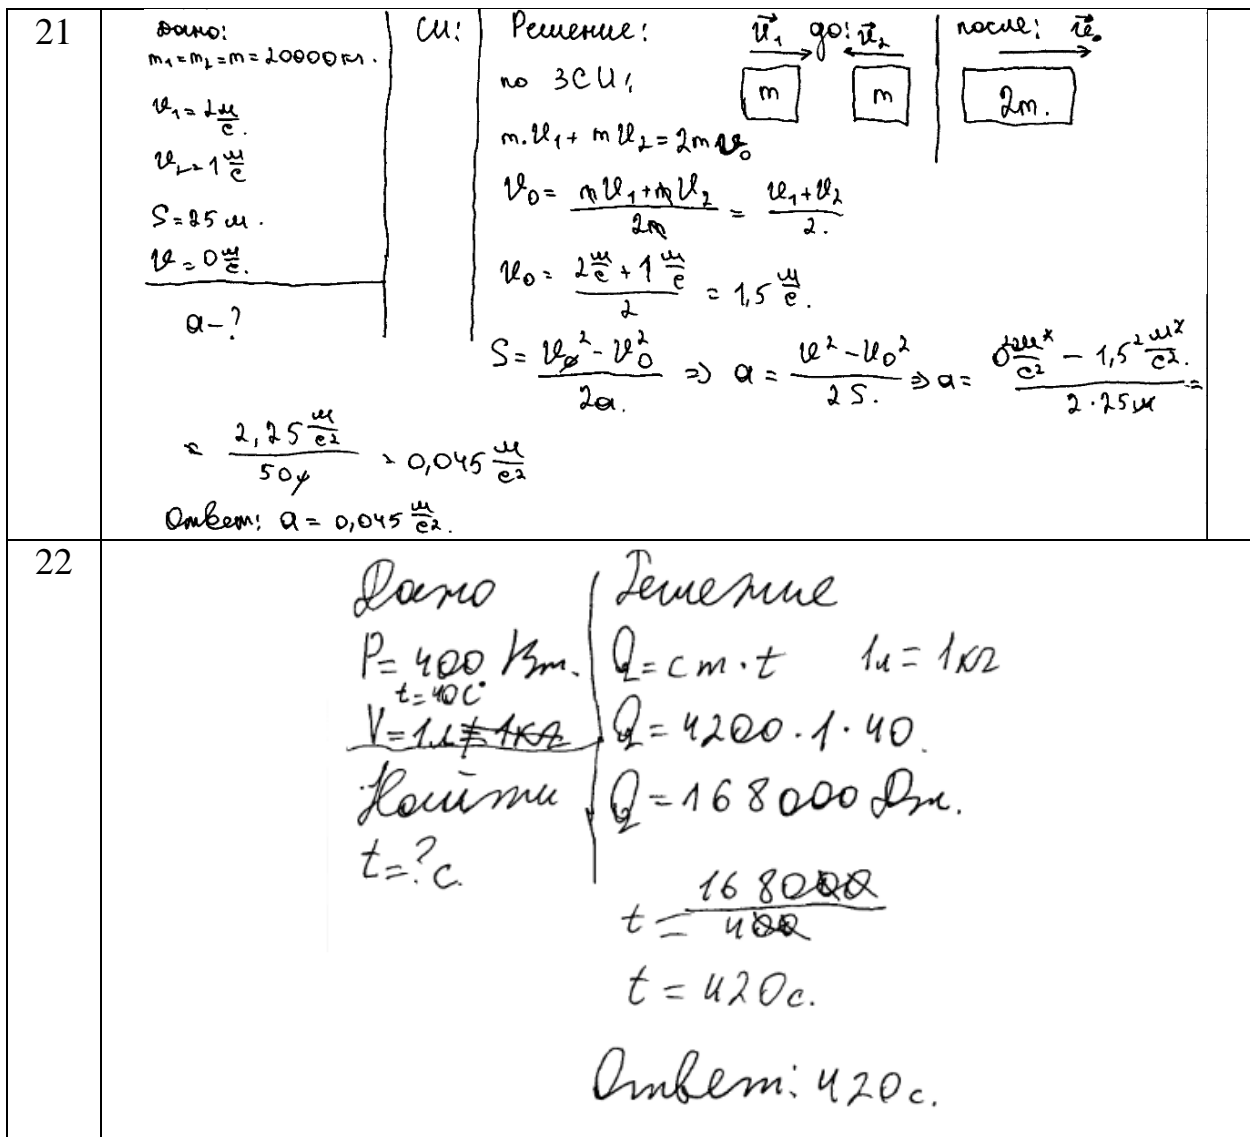 21
Дано:
m₁=m₂=m=20000кг.
v₁=2м/с.
v₂=1м/с
S=25м.
v=0м/с.
a-?
СИ:
Решение:
по ЗСИ:
m·v₁+mv₂=2mv₀
v₀= (mv₁+mv₂)/2m = (v₁+v₂)/2.
v₀= (2м/с+1м/с)/2 = 1,5м/с.
v⃗₁ до: v⃗₂
m m
после: v⃗₀
2m.
S= (v²-v₀²)/2a. => a= (v²-v₀²)/2S. => a= (0²м²/с²-1,5²м²/с².)/2·25м =
= 2,25м/с²/50 = 0,045м/с²
Ответ: a= 0,045м/с².
22
Дано
P=400Вт.
t=40C°
V=1л=1кг
Найти
t=?с.
Решение
Q=cm·t 1л=1кг
Q=4200·1·40.
Q=168000Дж.
t=168000/400
t=420с.
Ответ: 420с.